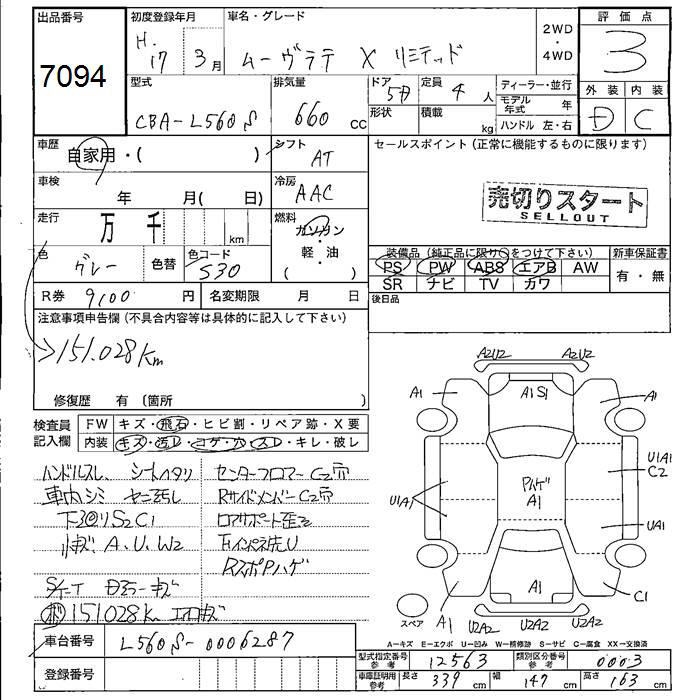 出品番号
7094
初度登録年月
H.17年3月
車名・グレード
ムーヴラテ X リミテッド
2WD
・
4WD
評価点
3
外装 内装
D C
型式
CBA-L560S
排気量
660 cc
ドア
5D
形状
定員
4人
積載
kg
ディーラー・並行
モデル年式 年
ハンドル 左・右
車歴
自家用・( )
シフト
AT
セールスポイント (正常に機能するものに限ります)
車検
年 月( 日)
冷房
AAC
売切りスタート
SELLOUT
走行
万 千 km
燃料
ガソリン
軽・油
( )
色
グレー
色替
色コード
S30
装備品 (純正品に限り○をつけて下さい)
PS PW ABS エアB AW
SR ナビ TV カワ
新車保証書
有・無
R券 9,100 円
名変期限 月 日
後日品
注意事項申告欄 (不具合内容等は具体的に記入して下さい)
>151.028Km
修復歴 有 (箇所 )
検査員
記入欄
FW キズ・飛石・ヒビ割・リペア跡・X要
内装 キズ・汚レ・コゲ・穴・スレ・キレ・破レ
ハンドルスレ、シートヘタリ
車内シミ ヤニ汚し
下回りS2C1
小キズ、A、U、W2
151028Km エアロキズ
センターフロアーC2穴
RサイドメンバーC2穴
ロアサポート歪ミ
Fインパネ先U
RスポPハゲ
A2U2 A2U2
A1 A1S1 A1
U1A1
C2
U1A1
PハゲA1
UA1
A1
A1 C1
スペア
U2A2 U2A2 U2A2
A―キズ E―エクボ U―凹み W―補修跡 S―サビ C―腐食 XX―交換済
車台番号 L560S-0006287
登録番号
型式指定番号 参考 12563
類別区分番号 参考 0003
車庫証明用 参考 長さ 339 cm 幅 147 cm 高さ 163 cm